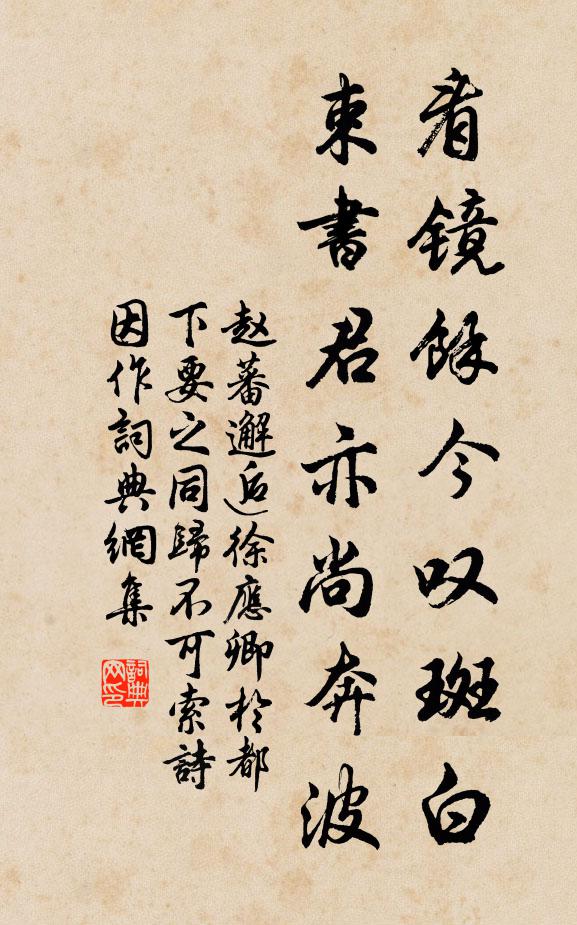 看镜馀今叹斑白
束書君亦尚奔波
赵蕃邂逅徐應卿於都
下要之同歸不可索詩
因作詞典網集
詞典网印